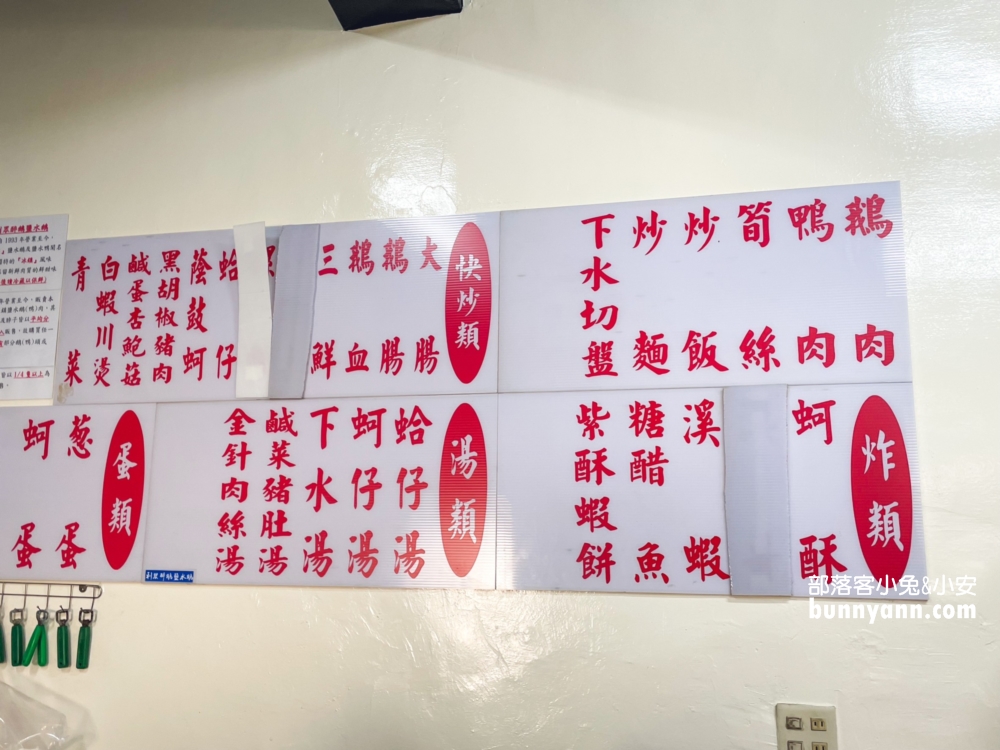 鵝肉
鴨肉
筍絲
炒飯
炒麵
下水切盤
快炒類
大腸
鵝腸
鵝血
三鮮
蛤仔
蔭鼓蚵
黑胡椒豬肉
鹹蛋杏鮑菇
白蝦川燙
青菜
炸類
蚵酥
溪蝦
糖醋魚
紫酥蝦餅
湯類
蛤仔湯
蚵仔湯
下水湯
鹹菜豬肚湯
金針肉絲湯
蛋類
蔥蛋
蚵蛋
部落客小兔&小安
bunnyann.com